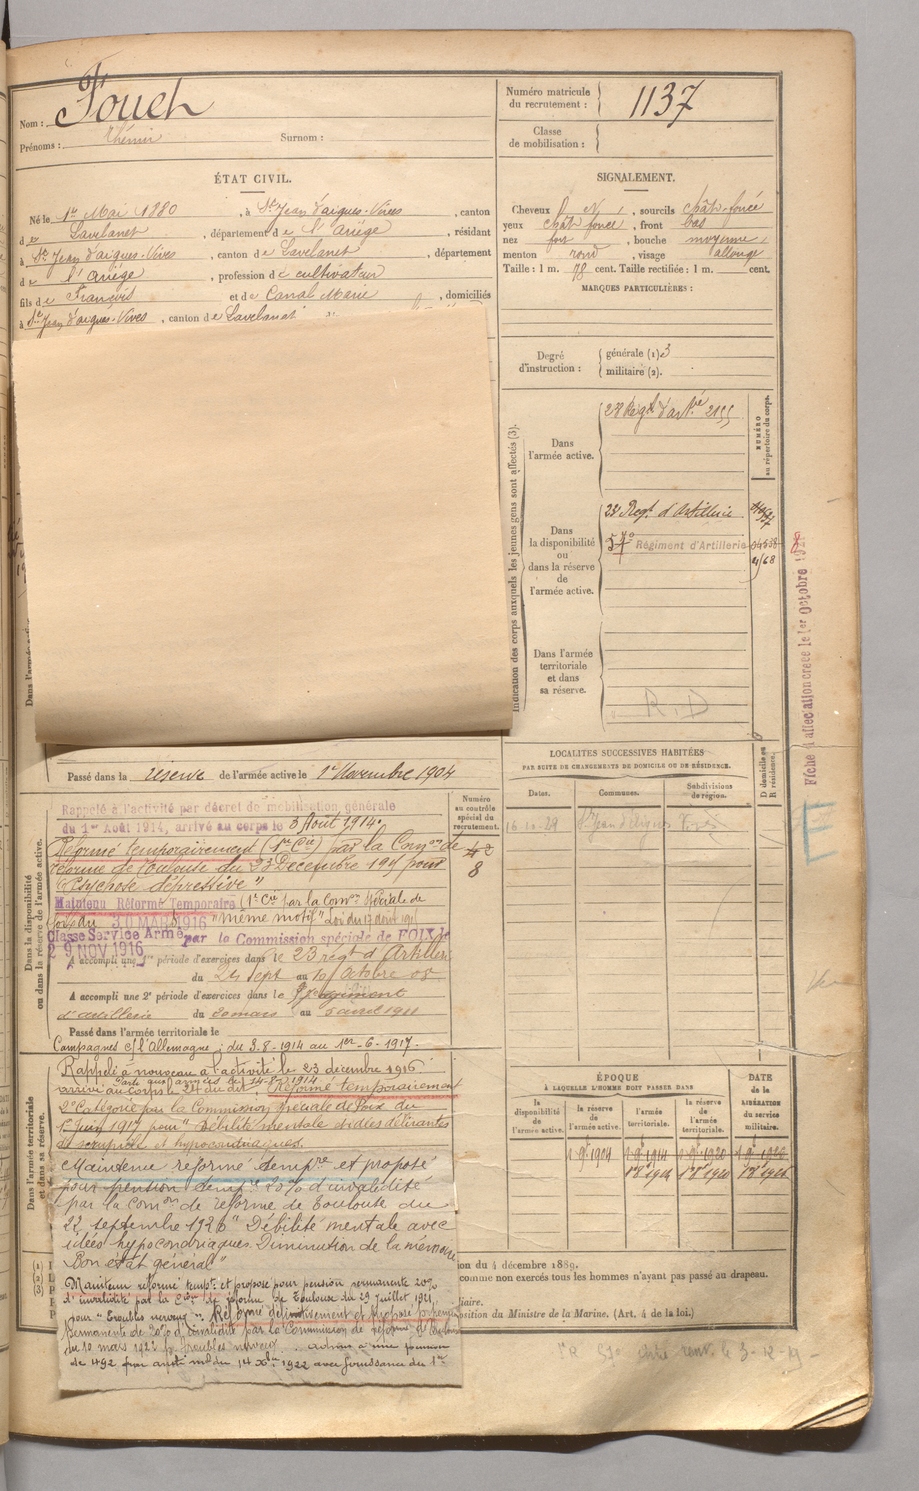 Nom : Fouch
Prénoms : Surnom :
Numéro matricule
du recrutement : 1137
Classe
de mobilisation :
ÉTAT CIVIL.
Né le 1er Mai 1880, à St Jean d'aigues-Vives, canton
de Lavelanet, département de l'Ariège, résidant
à St Jean d'aigues-Vives, canton de Lavelanet, département
de l'Ariège, profession de cultivateur
fils de François et de Canal Marie, domiciliés
à St Jean d'aigues-Vives, canton de Lavelanet
SIGNALEMENT.
Cheveux, sourcils chât-foncé
yeux chât foncé, front bas
nez fort, bouche moyenne,
menton rond, visage allongé
Taille : 1 m. 78 cent. Taille rectifiée : 1 m. cent.
MARQUES PARTICULIÈRES :
Degré
d'instruction :
générale (1) 3
militaire (2).
Indication des corps auxquels les jeunes gens sont affectés (3).
Dans
l'armée active.
23 Régt d'art
NUMÉRO
au répertoire du corps.
Dans
la disponibilité
ou
dans la réserve
de
l'armée active.
23e Regt d'Artillerie
57e Régiment d'Artillerie
Dans l'armée
territoriale
et dans
sa réserve.
R.D
Fiche d'affectation créée le 1er Octobre
Passé dans la réserve de l'armée active le 1er Novembre 1904
LOCALITÉS SUCCESSIVES HABITÉES
PAR SUITE DE CHANGEMENTS DE DOMICILE OU DE RÉSIDENCE.
Dates. Communes. Subdivisions
de région.
D domicile ou
R résidence.
16-10-29 St Jean d'Aigues Vives
Dans la disponibilité
ou dans la réserve de l'armée active.
Numéro
au contrôle
spécial du
recrutement.
8
Rappelé à l'activité par décret de mobilisation générale
du 1er Août 1914, arrivé au corps le 3 Août 1914.
Réformé temporairement (1re Cie) par la Comon de
réforme de Toulouse du 23 Décembre 1915 pour
"Psychose dépressive"
Maintenu Réformé Temporaire (1e Cie par la Comon Spéciale de
Foix du 30 MARS 1916 "même motif"
Classé Service Armé par la Commission spéciale de FOIX le
29 NOV 1916
A accompli une 1re période d'exercices dans le 23 régt d'Artillerie
du 24 Sept au Octobre 08
A accompli une 2e période d'exercices dans le
d'artillerie du 20 mars au 5 avril 1911
Passé dans l'armée territoriale le
Campagnes c/ l'Allemagne : du 3-8-1914 au 1er-6-1917.
Dans l'armée territoriale
et dans sa réserve.
Rappelé à nouveau à l'activité le 23 décembre 1916
Parti aux armées le
arrivé au corps le 24 du dit. Réformé temporairement
2e Catégorie par la Commission spéciale de Foix du
1er Juin 1917 pour "Débilité mentale et idées délirantes
de scrupule et hypocondriaques.
Maintenu réformé tempre et proposé
pour pension tempre 20% d'invalidité
par la Comon de réforme de Toulouse du
22 septembre 1920 "Débilité mentale avec
idées hypocondriaques. Diminution de la mémoire
Bon état général"
Maintenu réformé tempre et proposé pour pension permanente 20%
d'invalidité par la Cion de réforme de Toulouse du 29 juillet 1921
pour "Troubles nerveux". Réformé définitivement et proposé pr pension
permanente de 20% d'invalidité par la Commission de réforme de Toulouse
du 10 mars 1922 pr troubles nerveux admis à une pension
de 492 frs par arrêté mel du 14 Xbre 1922 avec jouissance du 1er
ÉPOQUE
À LAQUELLE L'HOMME DOIT PASSER DANS
la
disponibilité
de
l'armée active.
la réserve
de
l'armée active.
l'armée
territoriale.
la réserve
de
l'armée
territoriale.
DATE
de la
LIBÉRATION
du service
militaire.
1 9bre 1904 1 9bre 1914 1 9bre 1920 1 9bre 1926
1 8bre 1914 1 8bre 1920 1 8bre 1926
ion du 4 décembre 1889.
comme non exercés tous les hommes n'ayant pas passé au drapeau.
iaire.
position du Ministre de la Marine. (Art. 4 de la loi.)